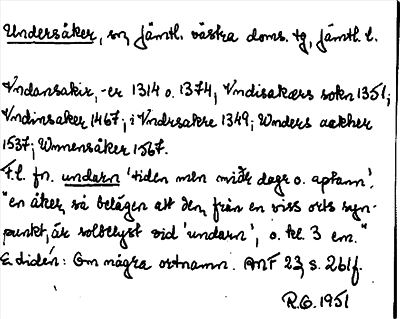 Undersåker, sn, Jämtl. västra doms. tg, Jämtl. l.
Vndansakir, -er 1314 o. 1374, Vndisakærs sokn 1351;
Vndinsaker 1467; i Vndrsakre 1349; Wnders aakher
1537; Wnnensåker 1567.
T.l. fn. undarn 'tiden mellan middag o. aftonen'.
"en åker, så belägen att den, från en viss orts syn-
punkt, är solbelyst vid 'undarn', o. kl. 3 em."
E. Lidén: Om några ortnamn. ANF 23, s. 261f.
R.O. 1951